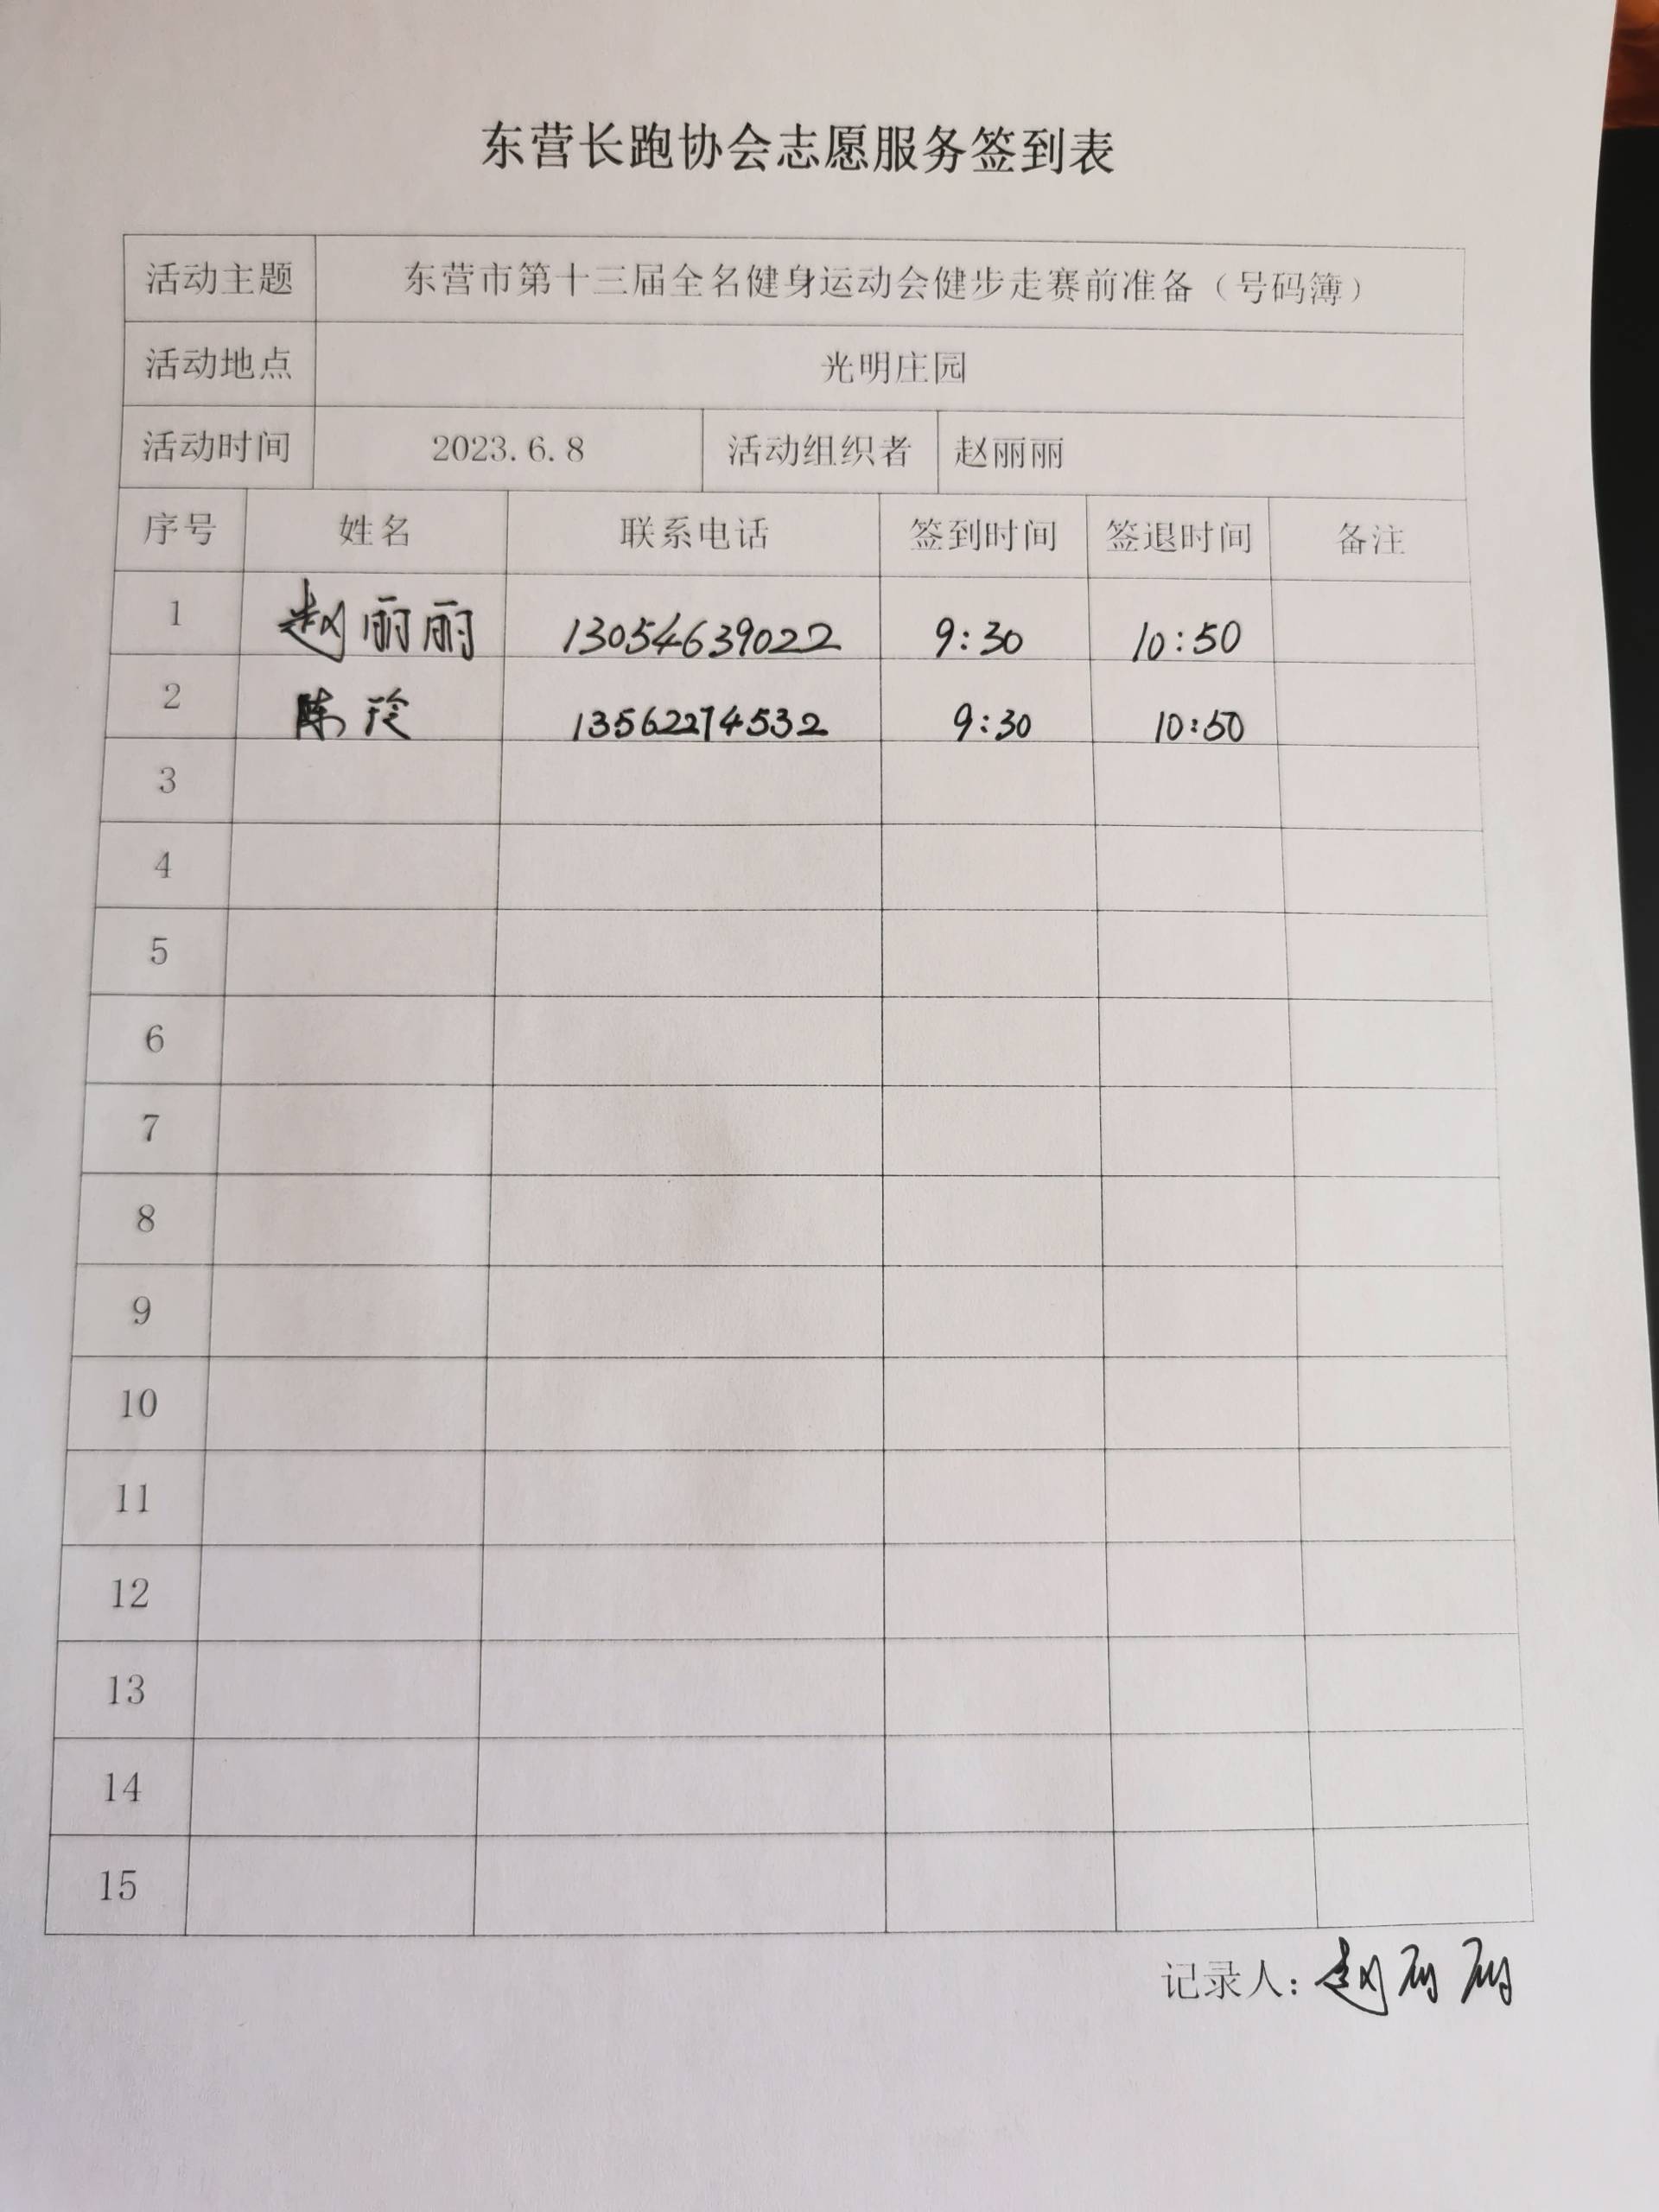 东营长跑协会志愿服务签到表
活动主题 东营市第十三届全名健身运动会健步走赛前准备（号码簿）
活动地点 光明庄园
活动时间 2023.6.8 活动组织者 赵丽丽
序号 姓名 联系电话 签到时间 签退时间 备注
1 赵丽丽 13054639022 9:30 10:50
2 陈玲 13562274532 9:30 10:50
3
4
5
6
7
8
9
10
11
12
13
14
15
记录人：赵丽丽